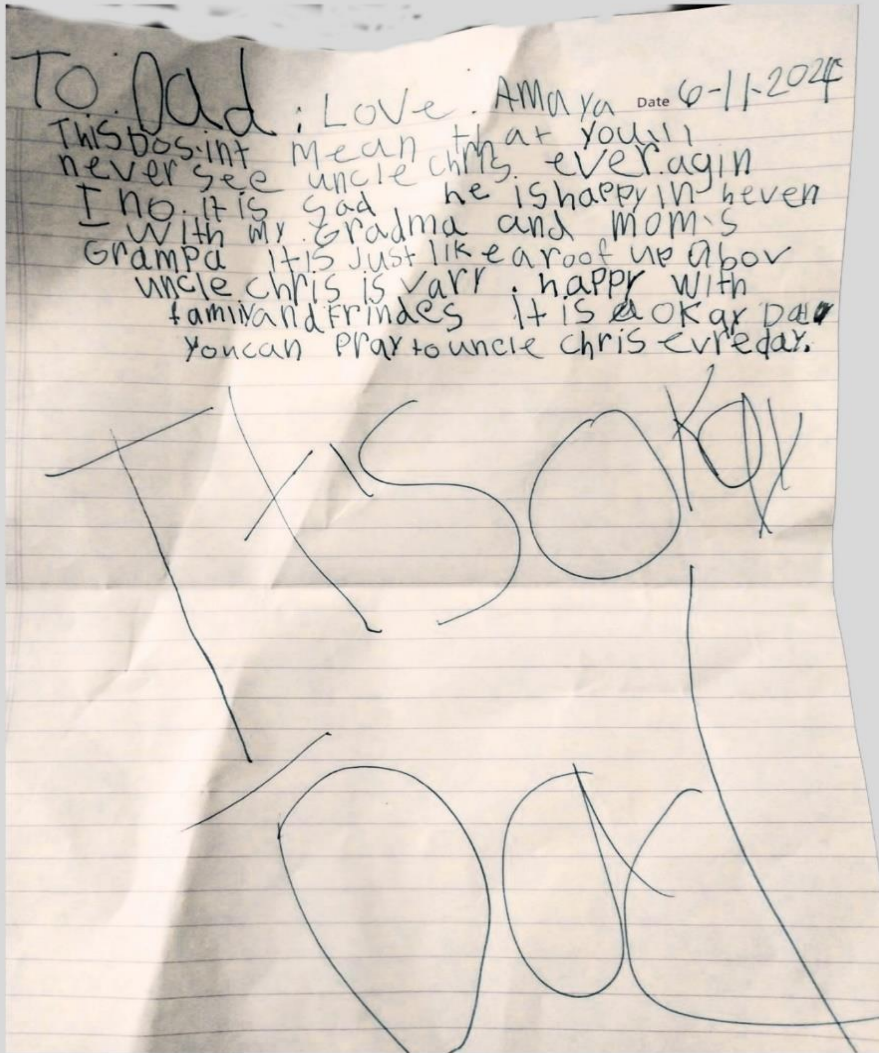 To: Dad: Love: Amaya Date 6-11-2024
This dos.int mean that you'll
never see uncle chris. ever.agin
I no. it is sad he is happy in heven
with my Gradma and mom's
Grampa it is Just like a roof up abov
uncle chris is varr. happy with
family and Frindes It is a okay Dad
you can pray to uncle chris evreday.
It is okay
Dad